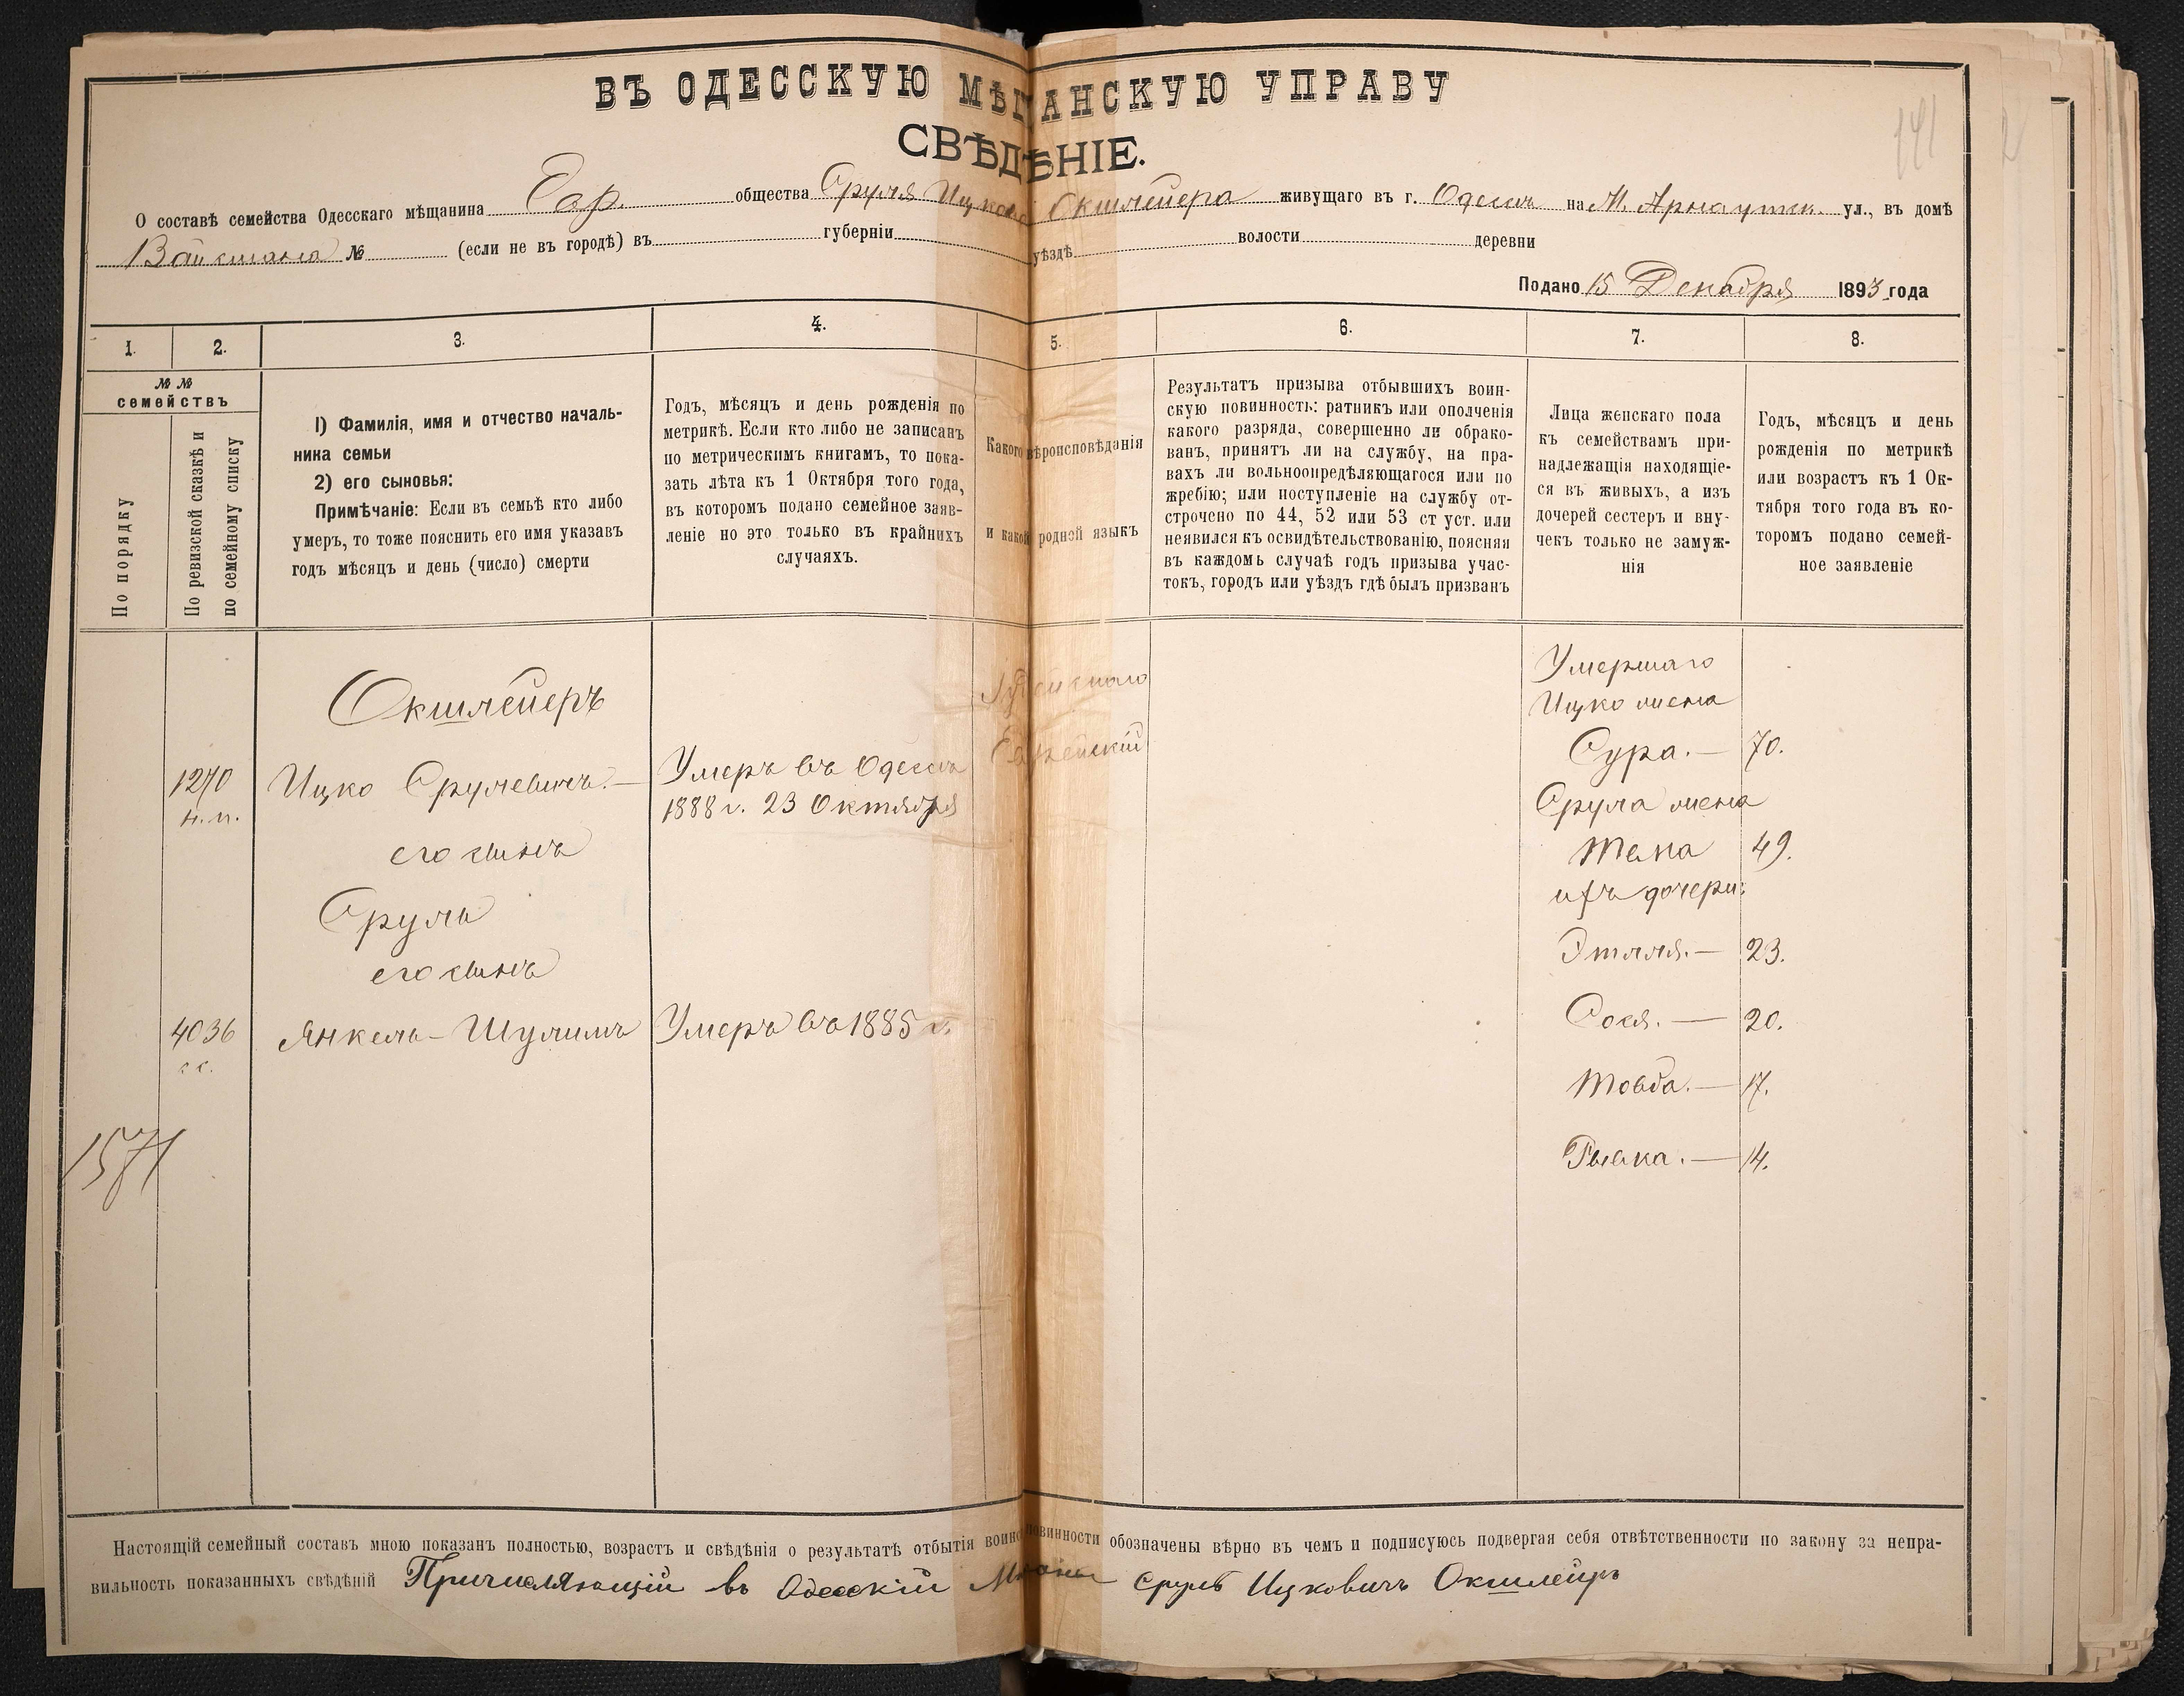 ВЪ ОДЕССКУЮ МѢЩАНСКУЮ УПРАВУ
СВѢДѢНІЕ.
141
О составѣ семейства Одесскаго мѣщанина Евр. общества Сруля Ицкова Окшлейера живущаго въ г. Одессѣ на М. Арнаутск. ул., въ домѣ
Вайсмана № (если не въ городѣ) въ губерніи уѣздѣ волости деревни
Подано 15 Декабря 1893 года
1. 2. 3. 4. 5. 6. 7. 8.
№ №
семействъ
По порядку
По ревизской сказкѣ и
по семейному списку
1) Фамилія, имя и отчество началь-
ника семьи
2) его сыновья:
Примѣчаніе: Если въ семьѣ кто либо
умеръ, то тоже пояснить его имя указавъ
годъ мѣсяцъ и день (число) смерти
Годъ, мѣсяцъ и день рожденія по
метрикѣ. Если кто либо не записанъ
по метрическимъ книгамъ, то пока-
зать лѣта къ 1 Октября того года,
въ которомъ подано семейное заяв-
леніе но это только въ крайнихъ
случаяхъ.
Какого вѣроисповѣданія
и какой родной языкъ
Результатъ призыва отбывшихъ воин-
скую повинность: ратникъ или ополченія
какого разряда, совершенно ли обрако-
ванъ, принятъ ли на службу, на пра-
вахъ ли вольноопредѣляющагося или по
жребію; или поступленіе на службу от-
строчено по 44, 52 или 53 ст уст. или
неявился къ освидѣтельствованію, поясняя
въ каждомъ случаѣ годъ призыва учас-
токъ, городъ или уѣздъ гдѣ былъ призванъ
Лица женскаго пола
къ семействамъ при-
надлежащія находящіе-
ся въ живыхъ, а изъ
дочерей сестеръ и вну-
чекъ только не замуж-
нія
Годъ, мѣсяцъ и день
рожденія по метрикѣ
или возрастъ къ 1 Ок-
тября того года въ ко-
торомъ подано семей-
ное заявленіе
Окшлейеръ
1270
н.п.
Ицко Срулевичъ.—
его сынъ
Сруль
его сынъ
4036
с с.
Янкель-Шулимъ
1571
Умеръ въ Одессѣ
1888 г. 23 Октября
Умеръ въ 1885 г.
Іудейскаго
Еврейскій
Умершаго
Ицко жена
Сура.— 70.
Срула жена
49.
ихъ дочери:
Этля.— 23.
Сося.— 20.
Товба.— 17.
14.
Настоящій семейный составъ мною показанъ полностью, возрастъ и свѣдѣнія о результатѣ отбытія воинс повинности обозначены вѣрно въ чемъ и подписуюсь подвергая себя отвѣтственности по закону за непра-
вильность показанныхъ свѣдѣній Причисляющій въ Одесскій Срулъ Ицковичъ Окшлейръ